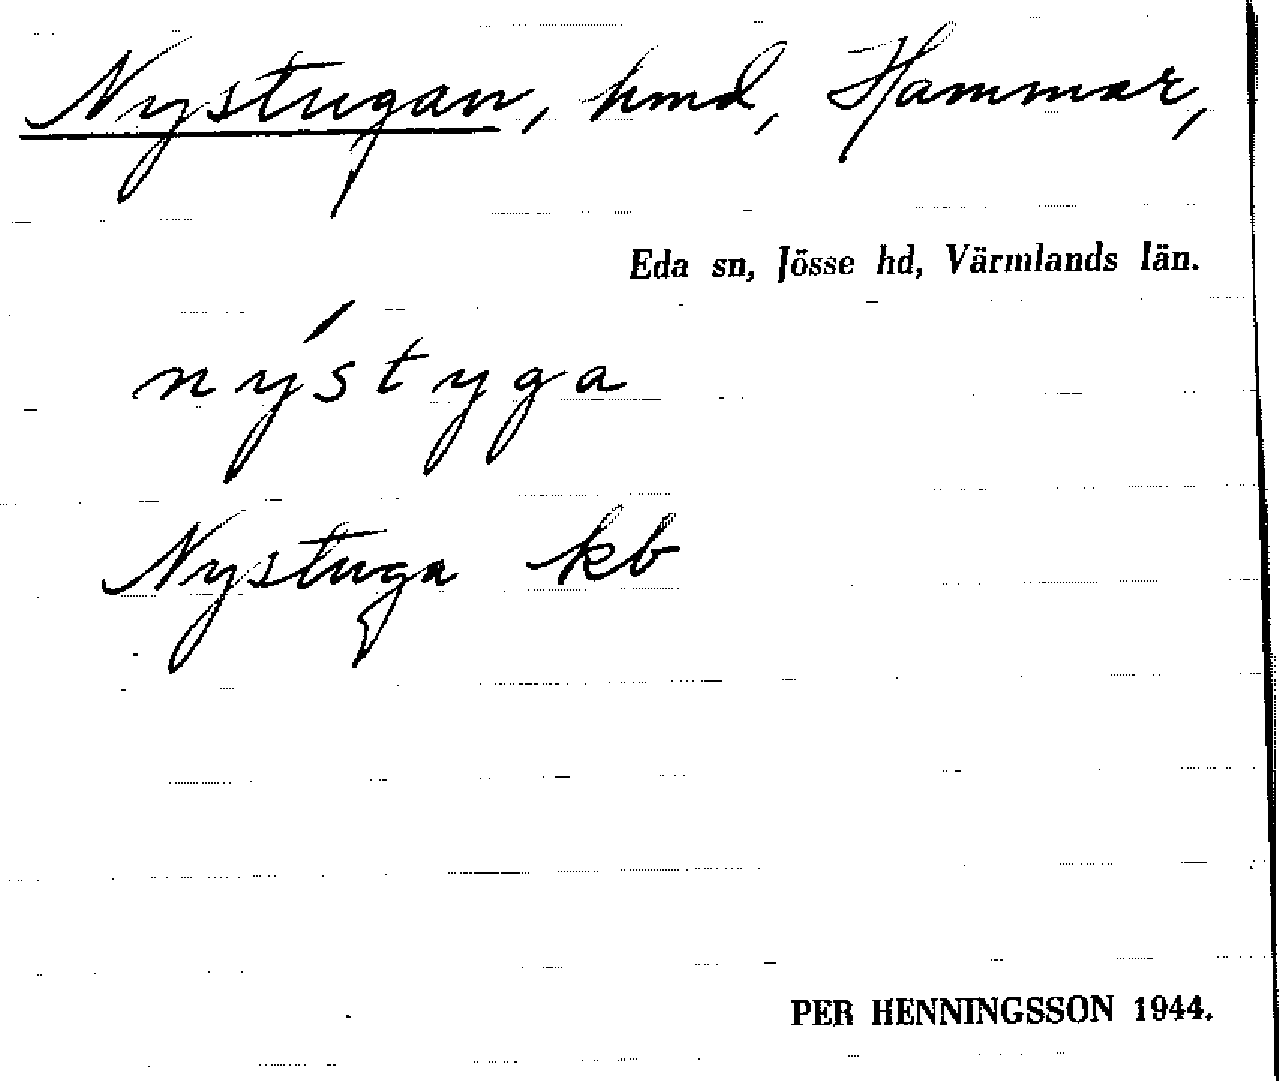 Nystugan, hmd, Hammar,
Eda sn, Jösse hd, Värmlands län.
nýstyga
Nystuga kb
PER HENNINGSSON 1944.